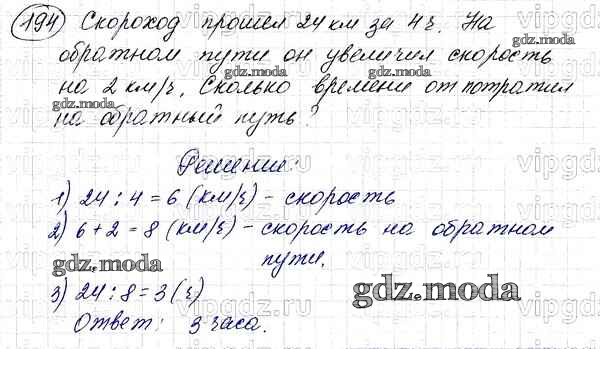 194 Скороход прошел 24 км за 4 ч. На
обратном пути он увеличил скорость
на 2 км/ч. Сколько времени он потратил
на обратный путь?
Решение:
1) 24 : 4 = 6 (км/ч) - скорость
2) 6 + 2 = 8 (км/ч) - скорость на обратном
пути.
3) 24 : 8 = 3 (ч)
Ответ: 3 часа.
gdz.moda
gdz.moda
gdz.moda
gdz.moda
gdz.moda